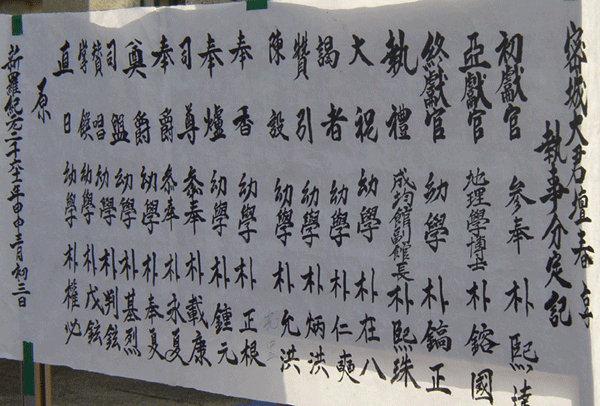 密城大君壇春享
執事分定記
初獻官 參奉 朴熙達
亞獻官 地理學博士 朴鎔國
終獻官 幼學 朴鎬正
執禮 成均館副館長 朴熙珠
大祝 幼學 朴在八
謁者 幼學 朴仁奭
贊引 幼學 朴炳洪
陳設 幼學 朴允洪
奉香 幼學 朴正根
奉爐 幼學 朴鍾元
司尊 參奉 朴載康
奉爵 參奉 朴永夏
奠爵 幼學 朴奉夏
司盥 幼學 朴基烈
贊唱 幼學 朴判鉉
掌饌 幼學 朴戊鉉
直日 幼學 朴權必
原
新羅紀元二千六十一年甲申三月初三日